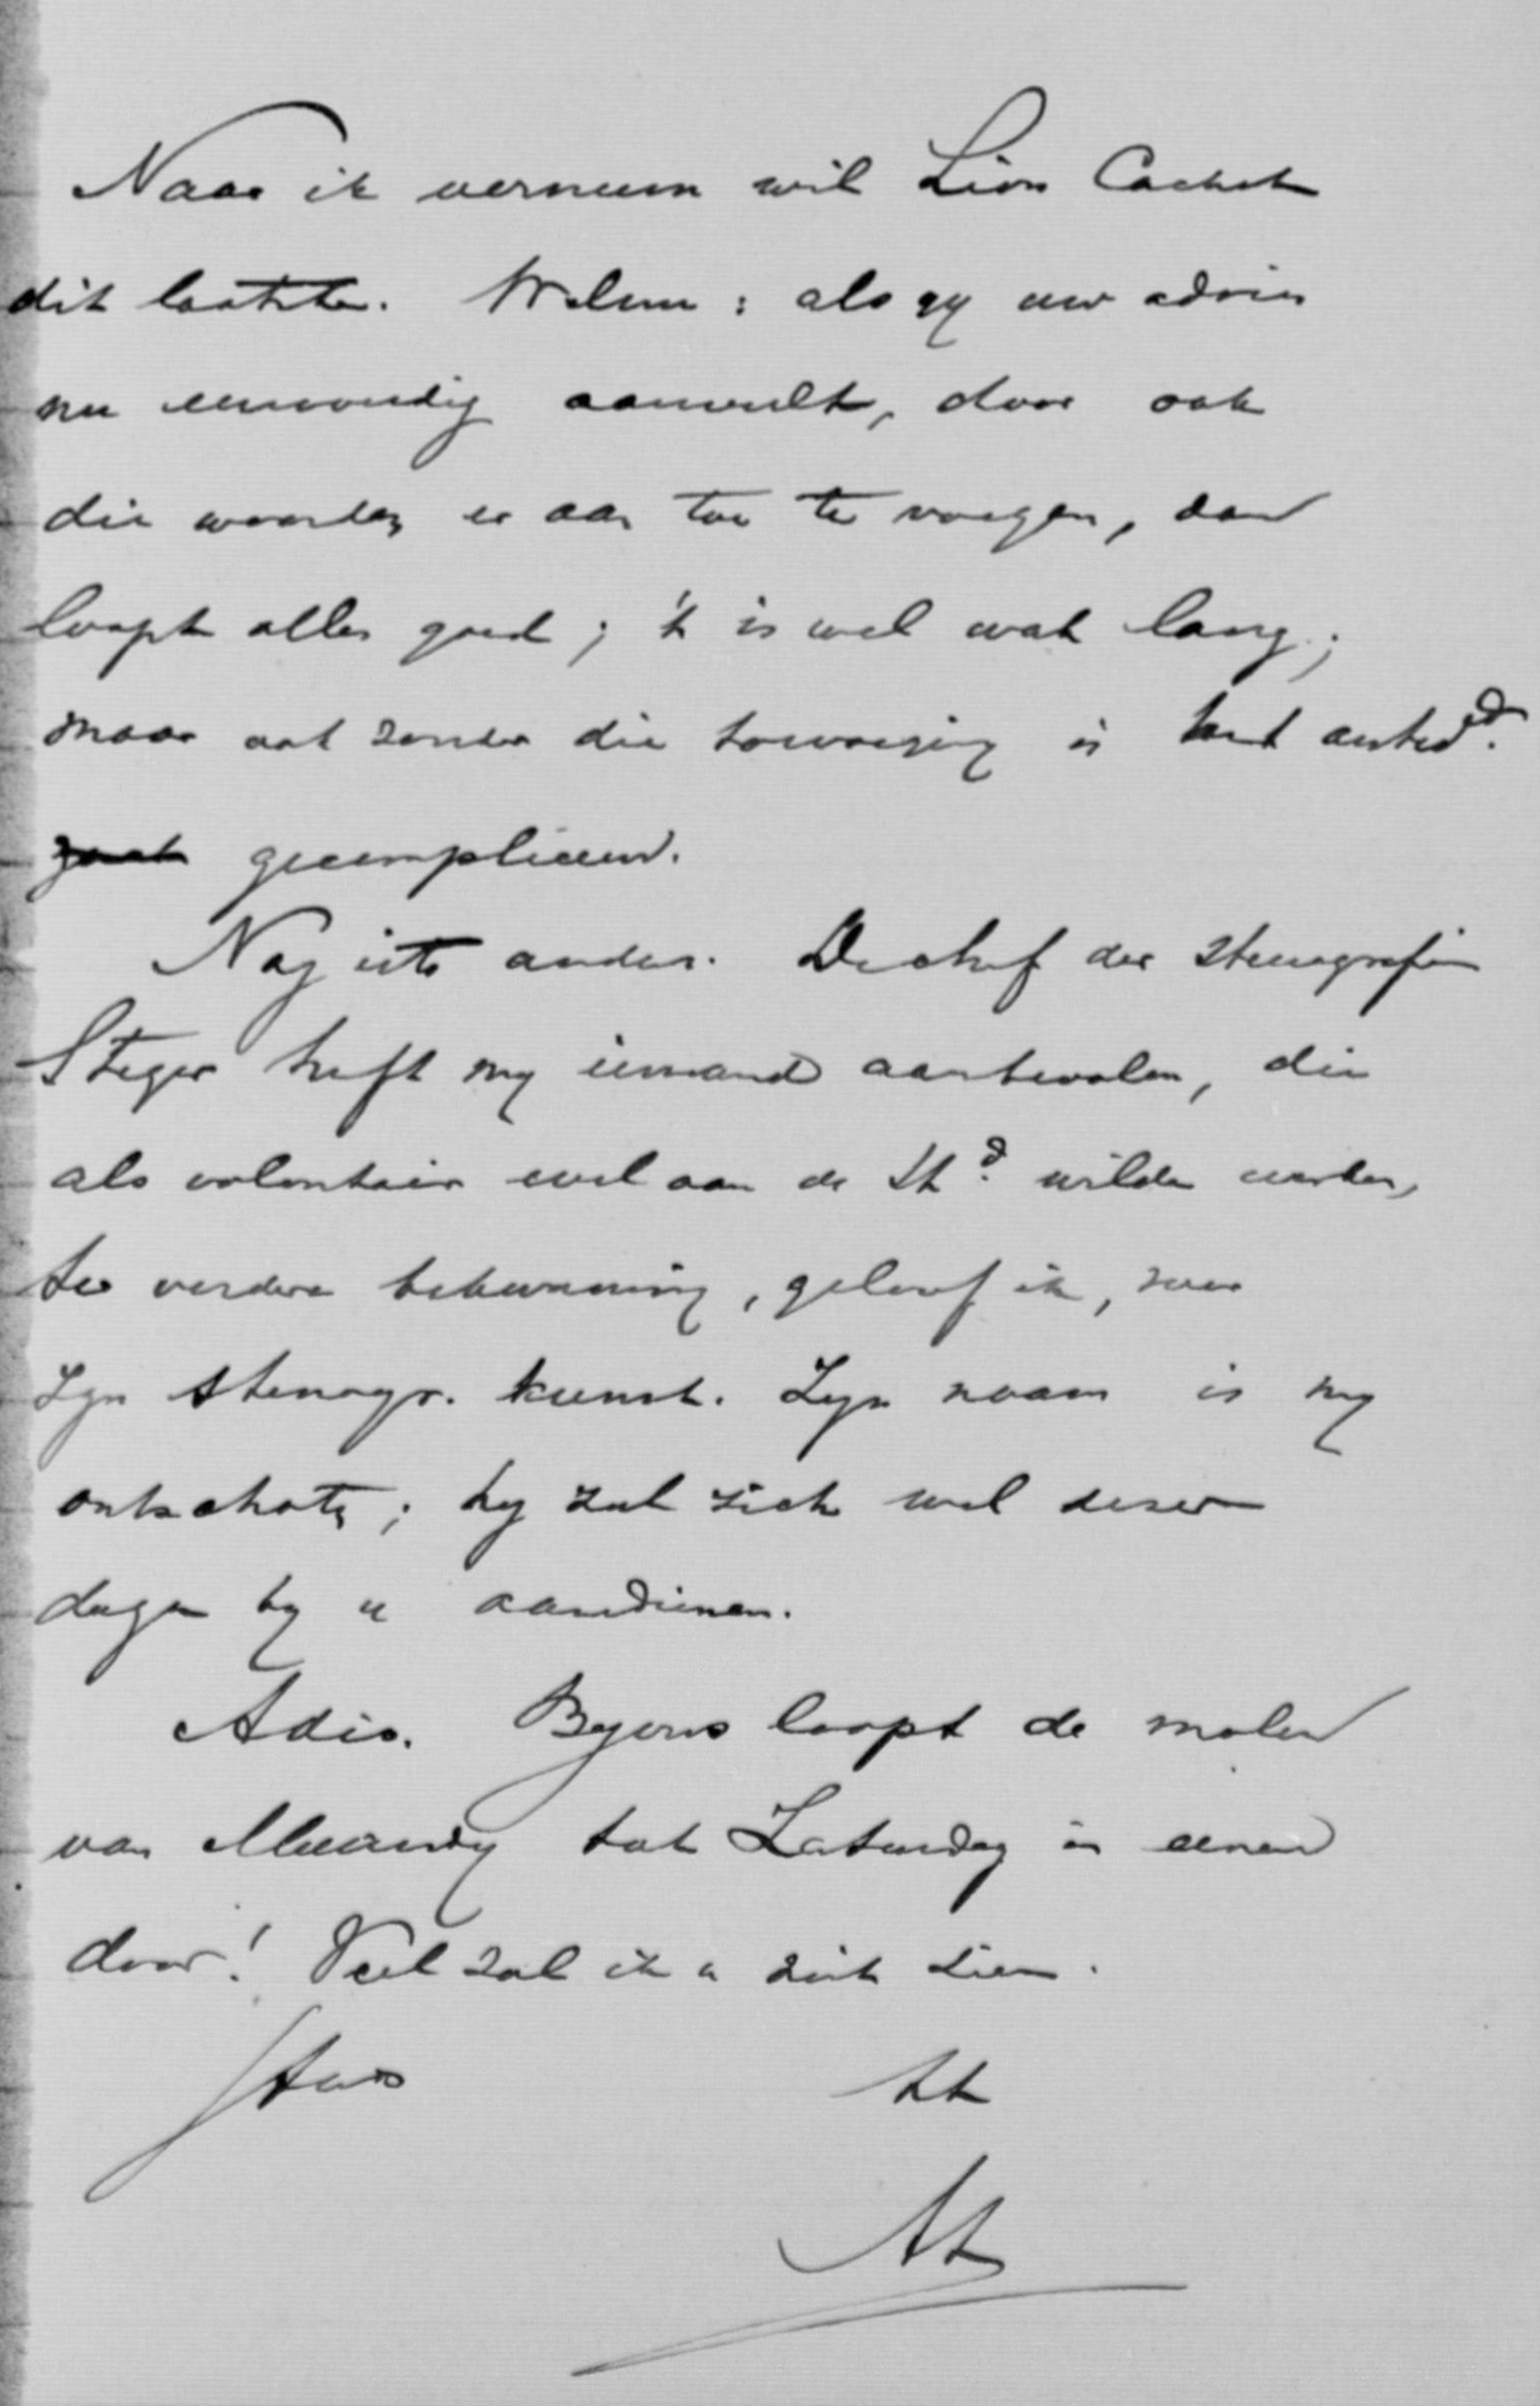 Naar ik verneem wil Lion Cachet
dit laatste. Welnu: als gij uw advies
nu eenvoudig aanvult, door ook
die woorden er aan toe te voegen, dan
loopt alles goed; 't is wel wat lang;
maar ook zonder die toevoeging is het
gecompliceerd.
Nog iets anders. De chef der stenografie
Steger heeft mij iemand aanbevolen, die
als volontair wel aan de St.d wilde werken,
ter verdere bekwaming, geloof ik, voor
zijn stenogr. kunst. Zijn naam is mij
ontschoten; hij zal zich wel dezer
dagen bij u aandienen.
Adio. Bijeens loopt de molen
van Maandag tot Zaturdag in eenen
door! Veel zal ik u niet zien.
tt